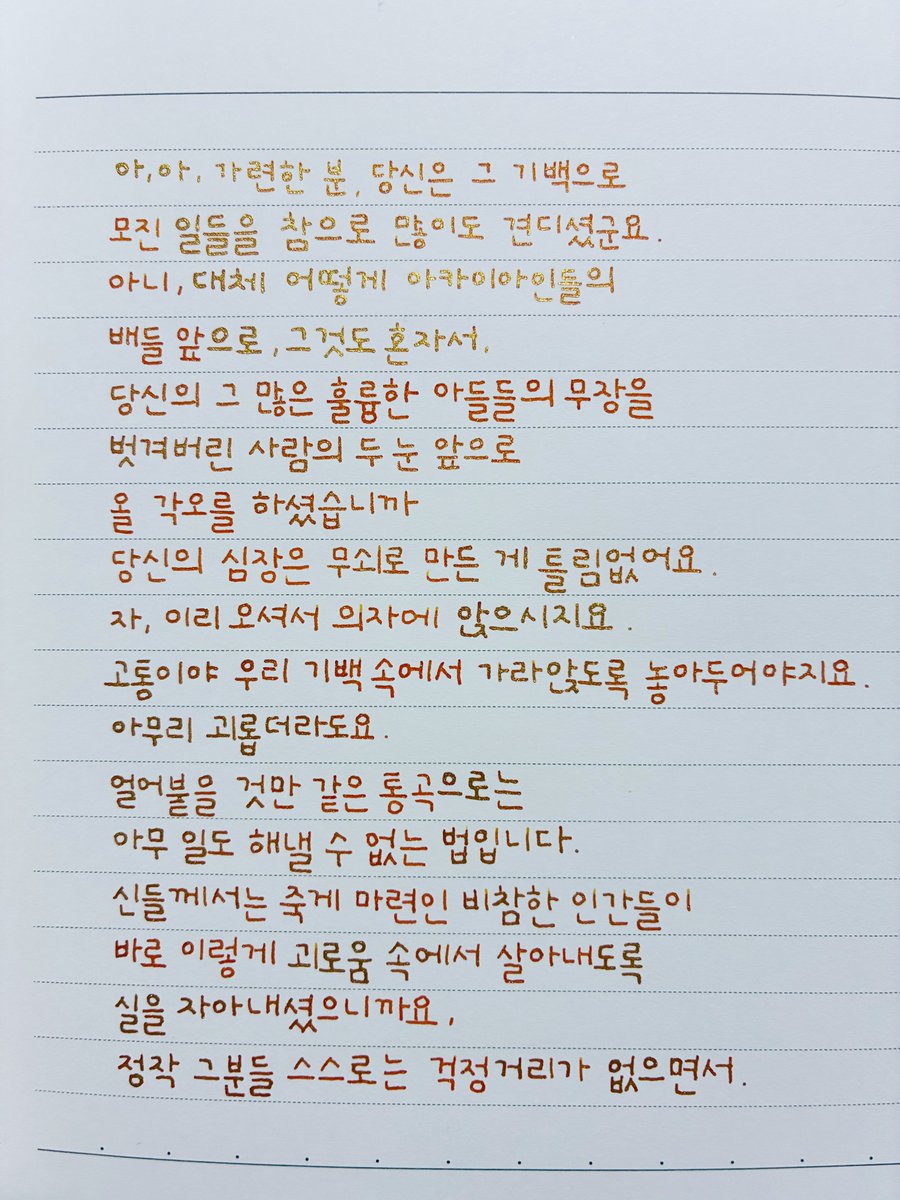 아, 아, 가련한 분, 당신은 그 기백으로
모진 일들을 참으로 많이도 견디셨군요.
아니, 대체 어떻게 아카이아인들의
배들 앞으로, 그것도 혼자서,
당신의 그 많은 훌륭한 아들들의 무장을
벗겨버린 사람의 두 눈 앞으로
올 각오를 하셨습니까
당신의 심장은 무쇠로 만든 게 틀림없어요.
자, 이리 오셔서 의자에 앉으시지요.
고통이야 우리 기백 속에서 가라앉도록 놓아두어야지요.
아무리 괴롭더라도요.
얼어붙을 것만 같은 통곡으로는
아무 일도 해낼 수 없는 법입니다.
신들께서는 죽게 마련인 비참한 인간들이
바로 이렇게 괴로움 속에서 살아내도록
실을 자아내셨으니까요,
정작 그분들 스스로는 걱정거리가 없으면서.